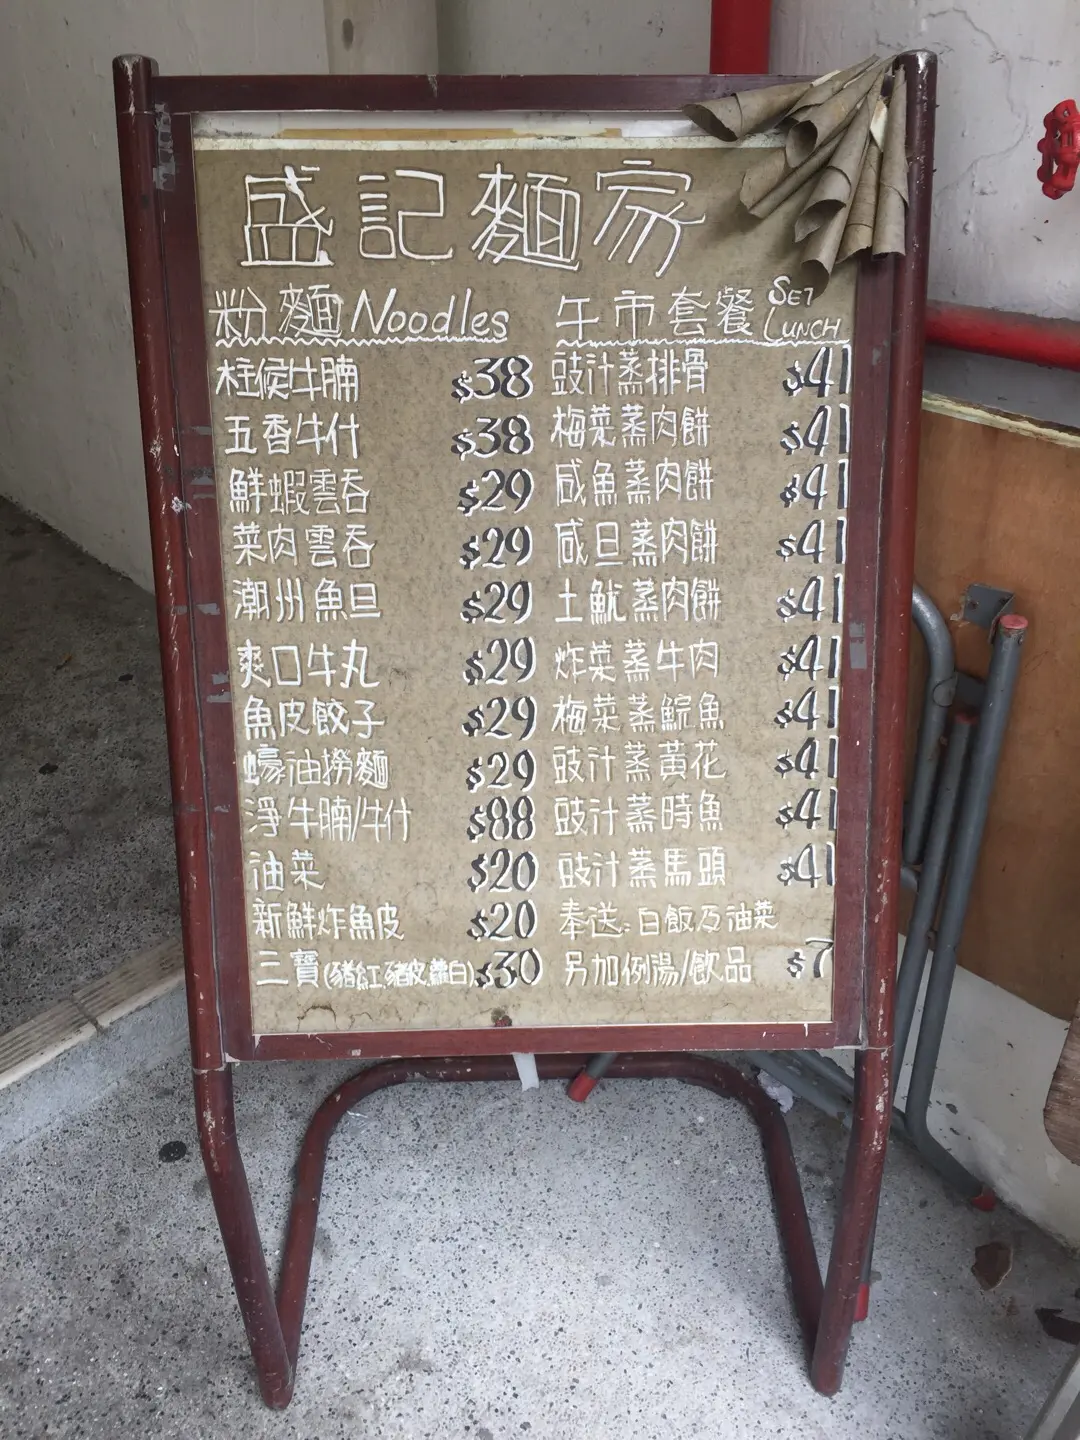 盛記麵家
粉麵 Noodles
柱侯牛腩 $38
五香牛什 $38
鮮蝦雲吞 $29
菜肉雲吞 $29
潮州魚旦 $29
爽口牛丸 $29
魚皮餃子 $29
蠔油撈麵 $29
淨牛腩/牛什 $88
油菜 $20
新鮮炸魚皮 $20
三寶(豬紅,豬皮,蘿白) $30
午市套餐 SET LUNCH
豉汁蒸排骨 $41
梅菜蒸肉餅 $41
咸魚蒸肉餅 $41
咸旦蒸肉餅 $41
土魷蒸肉餅 $41
炸菜蒸牛肉 $41
梅菜蒸鯇魚 $41
豉汁蒸黃花 $41
豉汁蒸時魚 $41
豉汁蒸馬頭 $41
奉送:白飯及油菜
另加例湯/飲品 $7